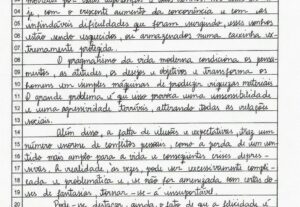 04 já, com o crescente aumento da concorrência e com as
05 infindáveis dificuldades que foram surgindo, esses sonhos
06 estão sendo esquecidos, ou armazenados numa caixinha ex-
07 tremamente protegida.
08 O pragmatismo da vida moderna condiciona os pensa-
09 mentos, as atitudes, os desejos e objetivos e transforma os
10 homens em simples máquinas de produzir riquezas materiais.
11 O grande problema é que isso provoca uma insensibilidade
12 e uma agressividade terríveis, alterando todas as relações
13 sociais.
14 Além disso, a falta de ilusões e expectativas, traz um
15 número enorme de conflitos pessoais, como a perda de um sen-
16 tido mais amplo para a vida e conseguintes crises depres-
17 sivas. A realidade, às vezes, pode ser excessivamente compli-
18 cada e problemática e, se não for amenizada com certas do-
19 ses de fantasias, tornar-se-á insuportável.
20 Pode-se destacar, ainda, o fato de que a felicidade é